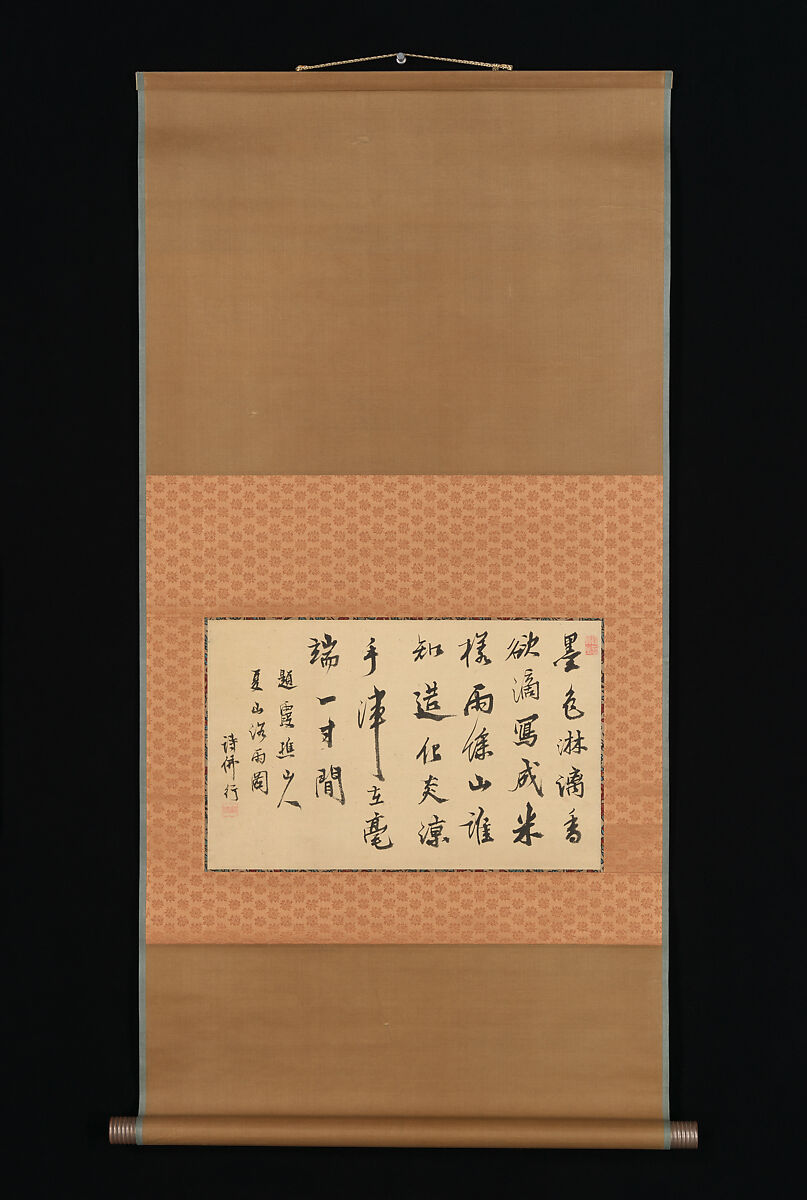 墨色淋漓香
欲滴寫成米
樣雨餘山誰
知造化炎涼
手準在毫
端一寸間
題霞樵山人
夏山浴雨圖
詩佛行